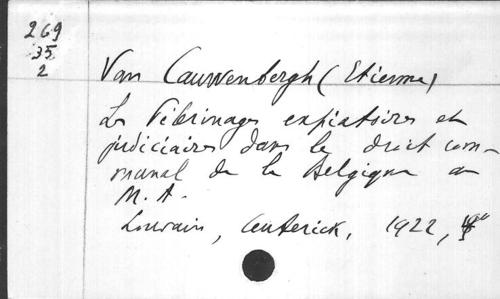 269
35
2
Van Cauwenbergh (Etienne)
Les Pèlerinages expiatoires et
judiciaires dans le droit com-
munal de la Belgique au
M. A.
Louvain, Ceuterick, 1922,